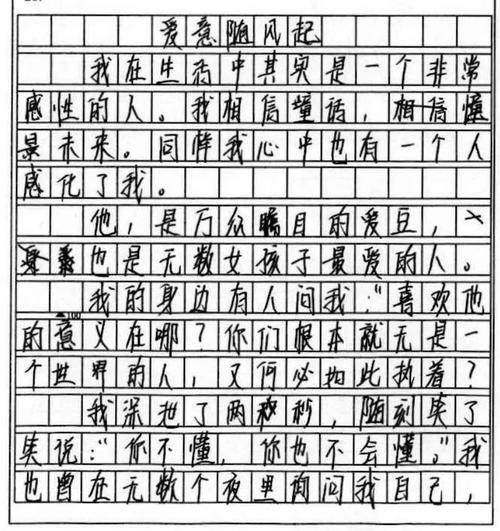 爱意随风起
我在生活中其实是一个非常
感性的人。我相信童话，相信憧
景未来。同样我心中也有一个人
感化了我。
他，是万众瞩目的爱豆，
也是无数女孩子最爱的人。
我的身边有人问我：“喜欢他
▲100
的意义在哪？你们根本就无是一
个世界的人，又何必如此执着？
我深了两秒，随刻笑了
笑说：“你不懂，你也不会懂。”我
也曾在无数个夜里询问我自己，